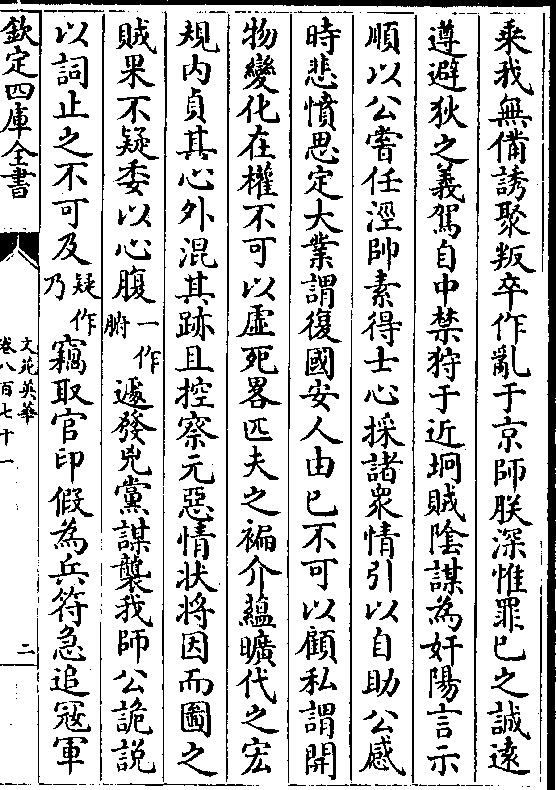 乘我無備誘聚叛卒作亂于京師朕深惟罪已之誠遠
遵避狄之義駕自中禁狩于近坰賊陰謀為奸陽言示
順以公嘗任涇帥素得士心採諸衆情引以自助公感
時悲憤思定大業謂復國安人由已不可以顧私謂開
物變化在權不可以虛死畧匹夫之褊介蘊曠代之宏
規内貞其心外混其跡且控察元惡情狀将因而圖之
賊果不疑委以心腹一作腑遽發兇黨謀襲我師公詭説
以詞止之不可及疑作乃竊取官印假為兵符急追冦軍
欽定四庫全書
文苑英華
卷八百七十一
二